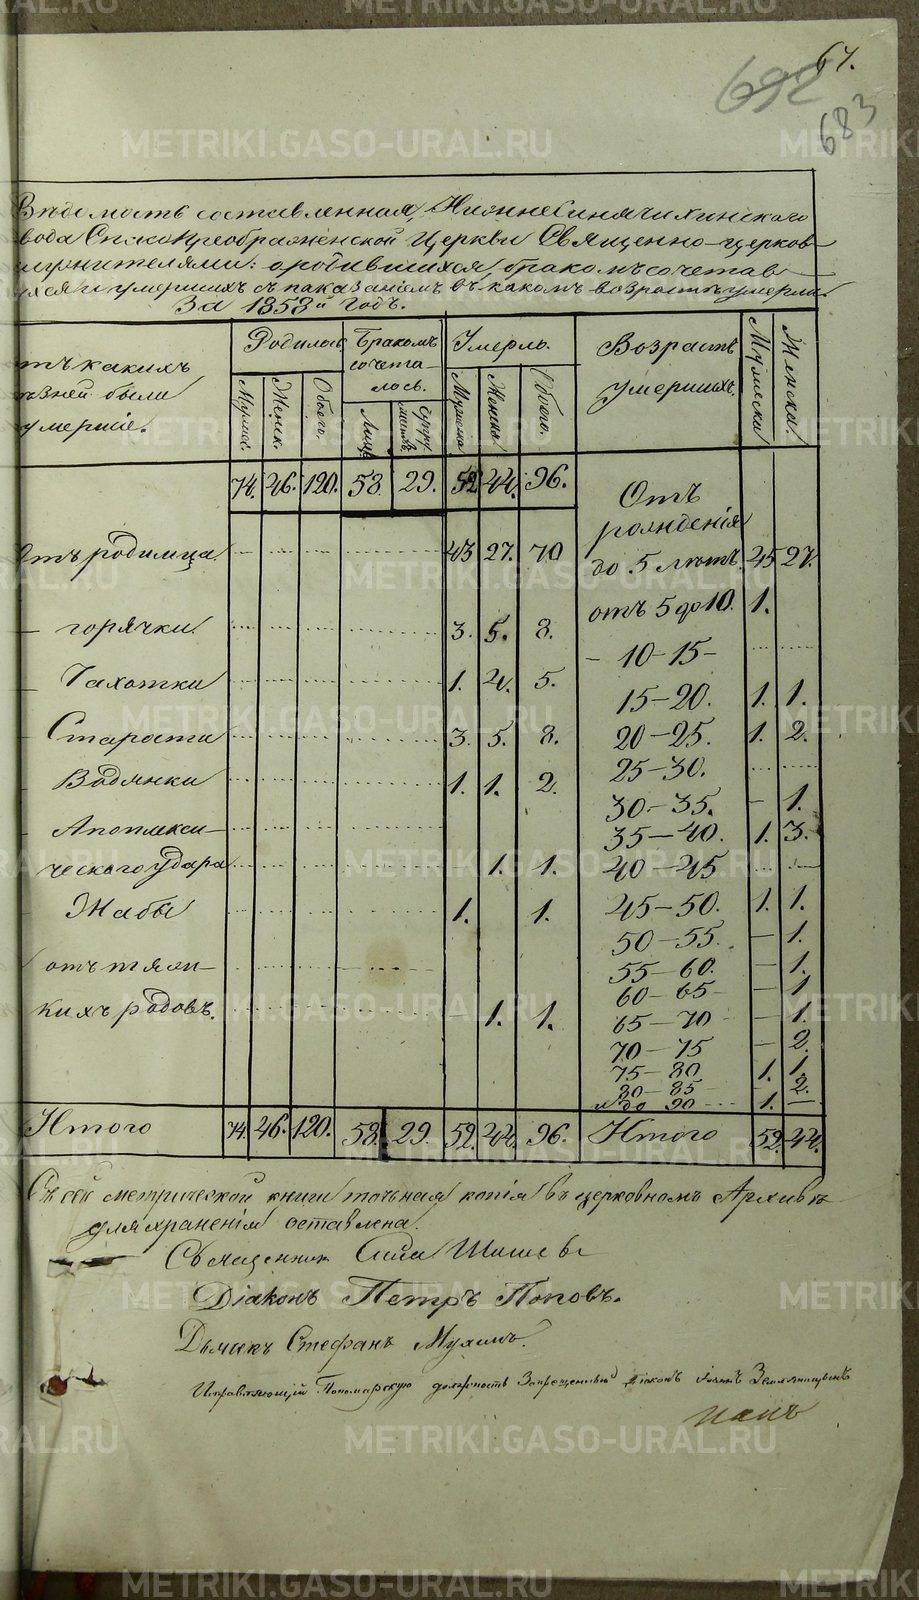 67.
692
683
Вѣдомость составленная, Нижнесинячихинскаго
вода Спасо Преображенской Церкви Священно-церков-
жителями: о родившихся, бракомъ сочетав-
хся и умершихъ съ показаніемъ въ какомъ возрастѣ умерли.
За 1858й годъ.
тъ какихъ
ѣзней были
умершіе.
Родилось
Бракомъ сочета-
лось.
Умерло.
Возрастъ
умершихъ.
Мужска
Женска.
Мужес.
Женск.
Обоего.
Лицъ
Мужеска
Женска
Обоего.
74. 46. 120. 58. 29. 52. 44. 96.
Отъ
рожденія
Отъ родимца 43 27. 70 до 5 лѣтъ. 45 27.
отъ 5 до 10. 1.
— горячки. 3. 5. 8.
— 10—15—
— Чахотки 1. 4. 5.
15—20. 1. 1.
— Старости 3. 5. 8. 20—25. 1. 2.
— Водянки 1. 1. 2. 25—30.
30—35. — 1.
— Апоплекси-
35—40. 1. 3.
ческаго удара 1. 1. 40—45
— Жабы 1. 1. 45—50. 1. 1.
50—55. — 1.
отъ тяж-
55—60. — 1.
60—65— — 1
кихъ родовъ. 1. 1. 65—70 — 1.
70—75 — 2.
75—80 1. 1.
80—85 — 2.
и до 90 1. —
Итого 74. 46. 120. 58. 29. 52. 44. 96. Итого 52. 44.
Съ сей метрической книги точная копія въ церковномъ Архивѣ
для храненія оставлена.
Священникъ
Діаконъ Петръ Поповъ.
Дьячекъ Стефанъ Мухинъ.
Исправляющій Пономарскую должность Запрещенный діаконъ Іоаннъ
METRIKI.GASO-URAL.RU